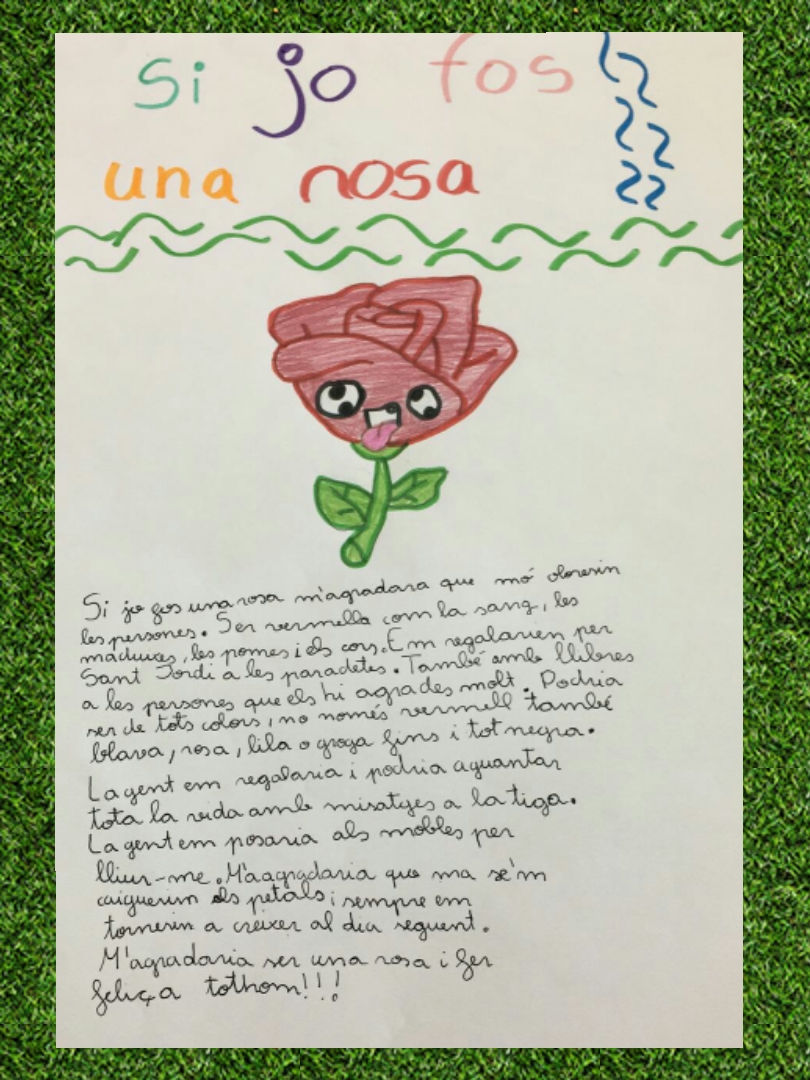 Si jo fos
una rosa
Si jo fos una rosa m'agradara que mó olorerin
les persones. Ser vermella com la sang, les
maduixes, les pomes i els cors. Em regalarien per
Sant Jordi a les paradetes. També amb llibres
a les persones que els hi agrades molt. Podria
ser de tots colors, no només vermell també
blava, rosa, lila o groga fins i tot negra.
La gent em regalaria i podria aguantar
tota la vida amb misatges a la tiga.
La gent em posaria als mobles per
lliur-me. M'aagradaria que ma se'm
caiguerin els petals i sempre em
tornerin a créixer al dia seguent.
M'agradaria ser una rosa i fer
feliç a tothom!!!